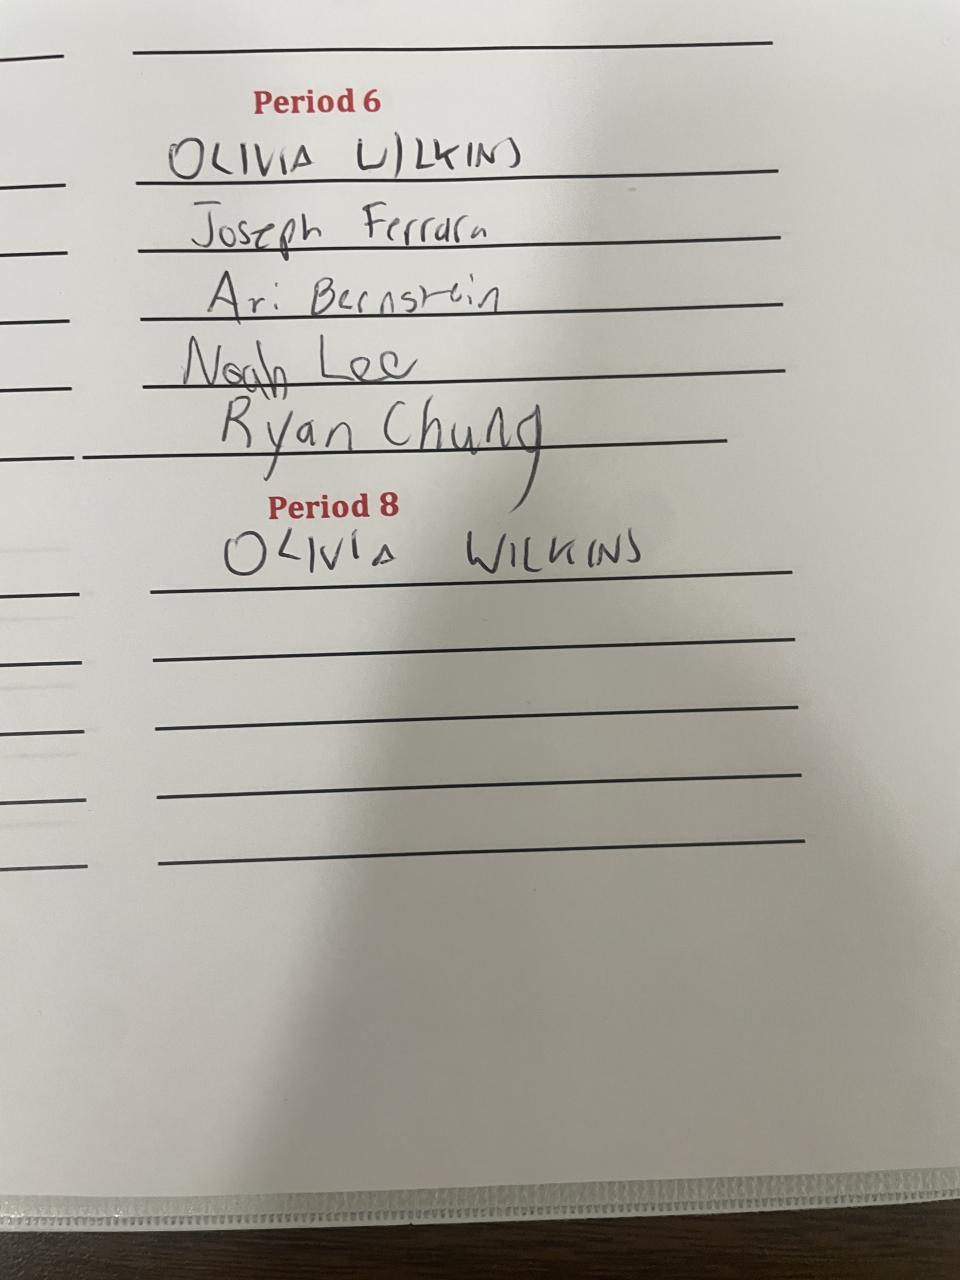 Period 6
OLIVIA WILKINS
Joseph Ferrara
Ari Bernstein
Noah Lee
Ryan Chung
Period 8
OLIVIA WILKINS